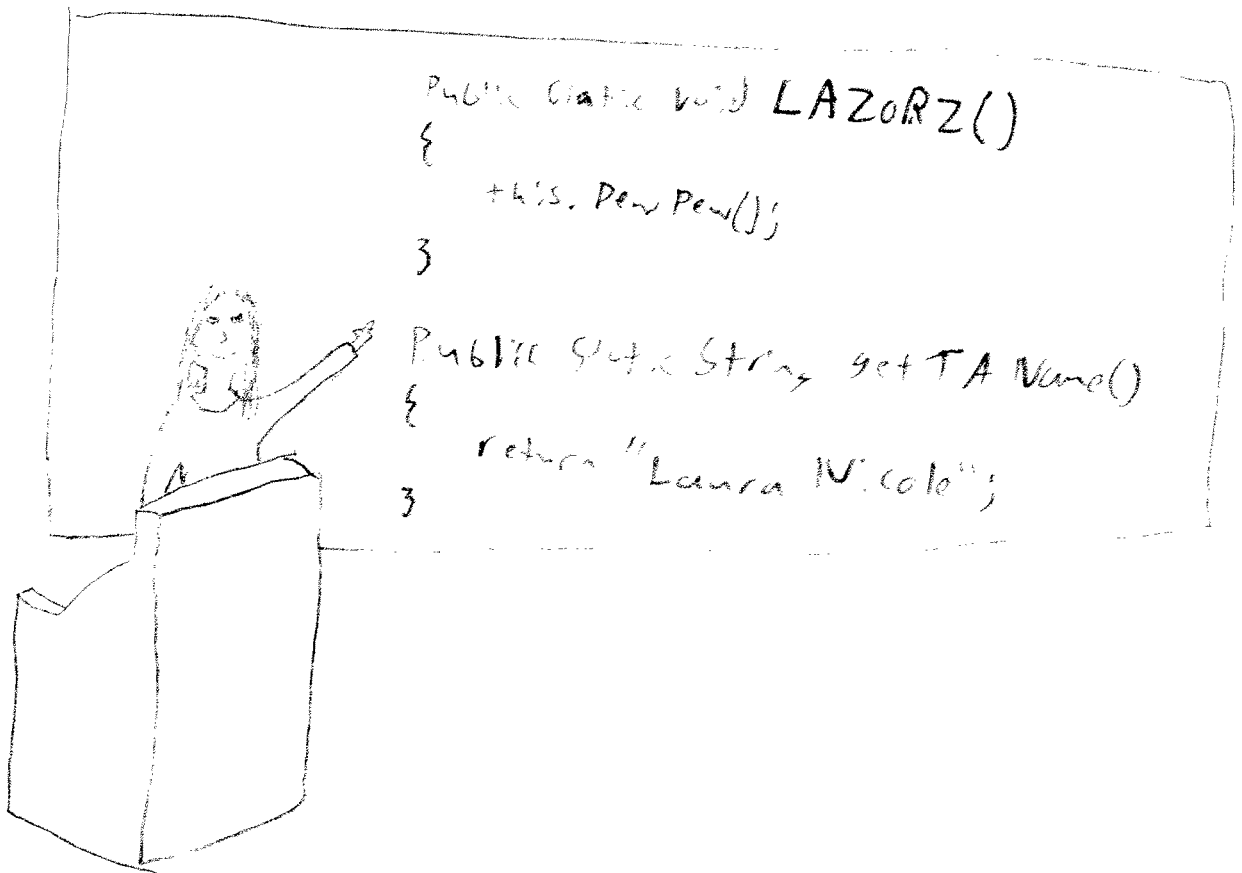 Public Static Void LAZoRZ()
{
this.PewPew();
}
Public Static String getTAName()
{
return "Laura Nicole";
}